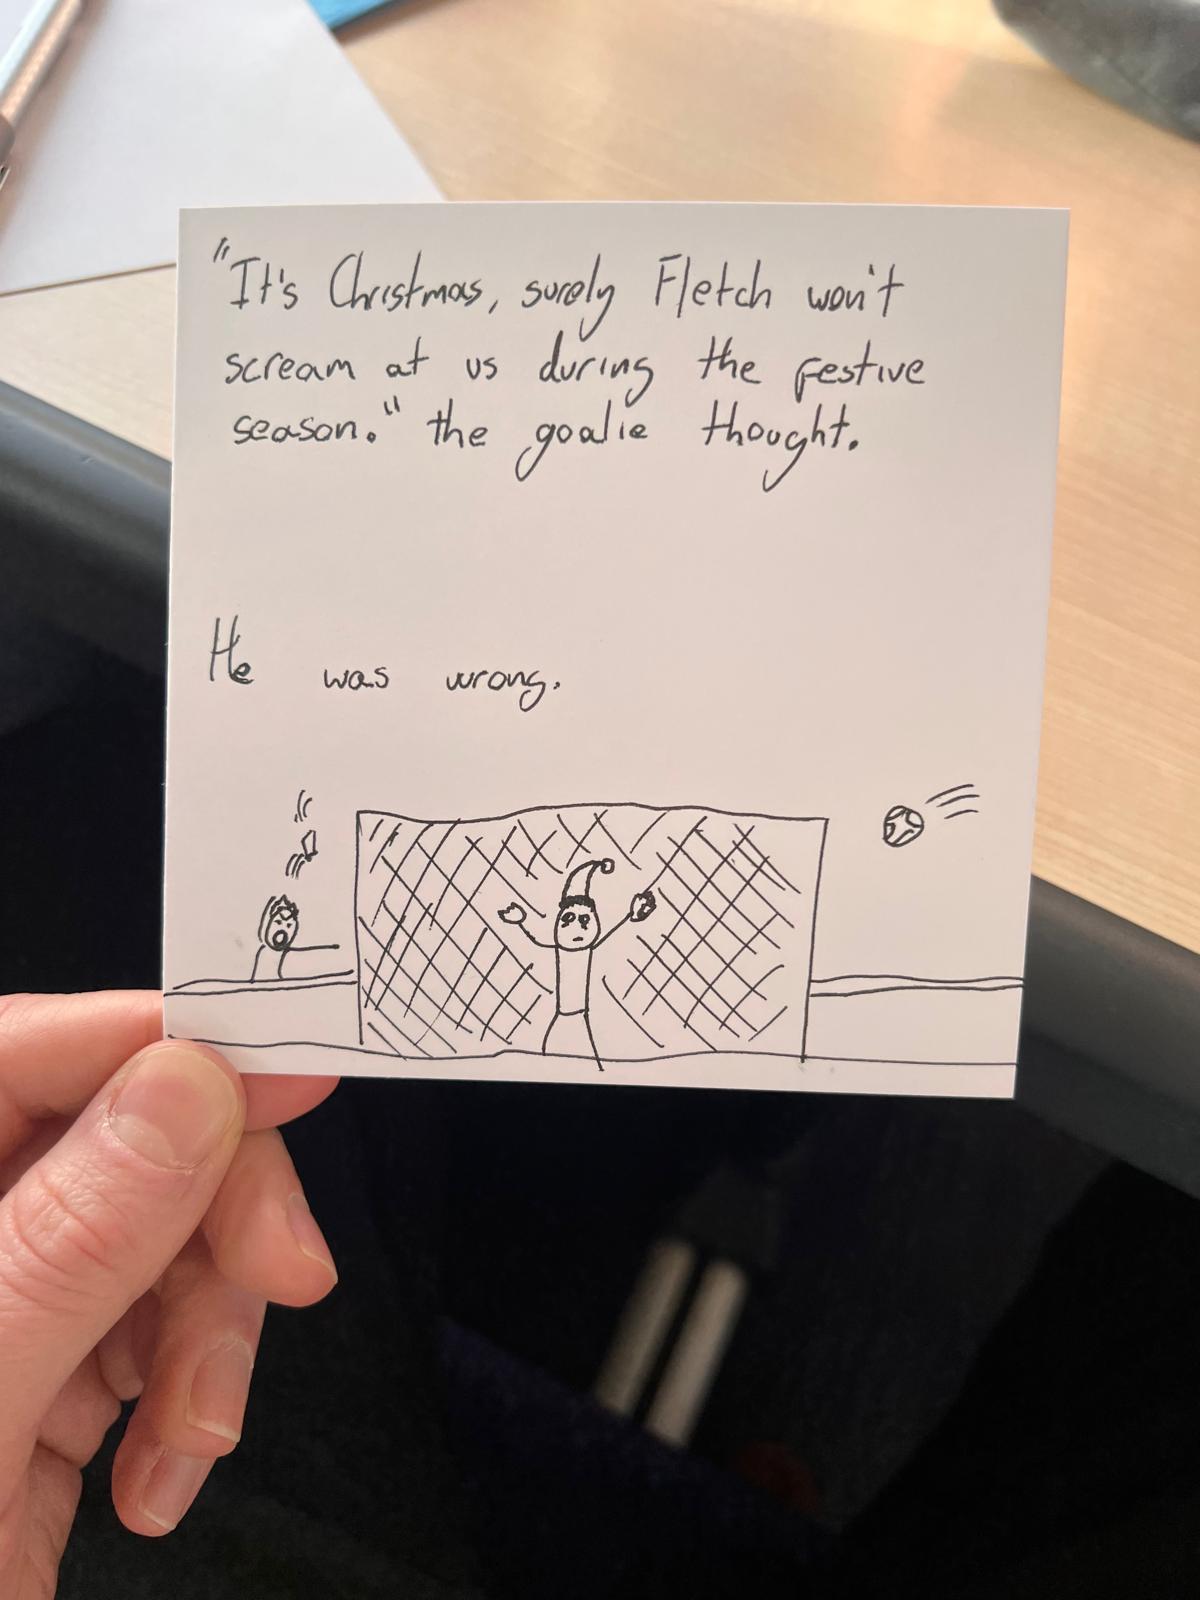 "It's Christmas, surely Fletch won't
scream at us during the festive
season." the goalie thought.
He was wrong.